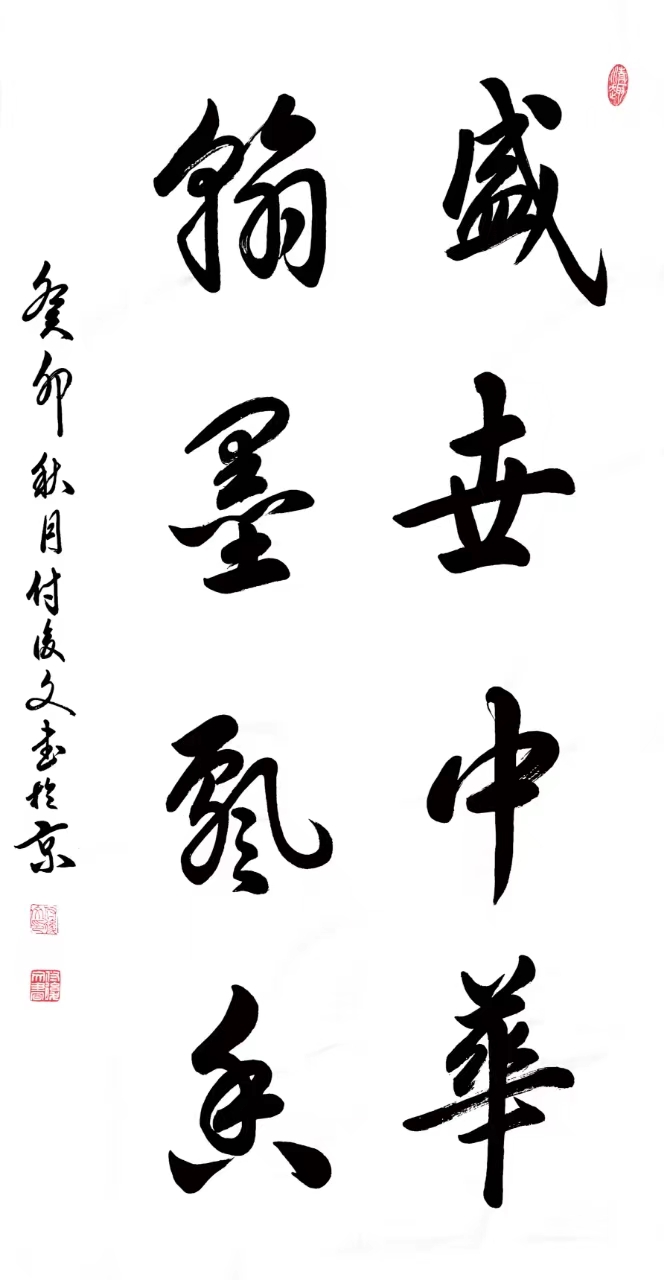 盛世中華
翰墨飘香
癸卯秋月付俊文書於京